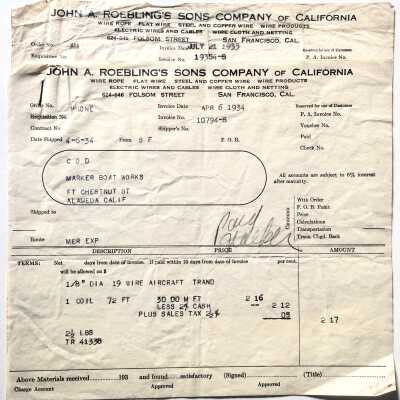 JOHN A. ROEBLING'S SONS COMPANY OF CALIFORNIA
WIRE ROPE FLAT WIRE STEEL AND COPPER WIRE WIRE PRODUCTS
ELECTRIC WIRES AND CABLES WIRE CLOTH AND NETTING
624-646 FOLSOM STREET SAN FRANCISCO, CAL.
Order No. Invoice Date JULY 21 1933 Reserved for use of Customer
Requisition No. Invoice No. 19354-S P. A. Invoice No.
JOHN A. ROEBLING'S SONS COMPANY OF CALIFORNIA
WIRE ROPE FLAT WIRE STEEL AND COPPER WIRE WIRE PRODUCTS
ELECTRIC WIRES AND CABLES WIRE CLOTH AND NETTING
624-646 FOLSOM STREET SAN FRANCISCO, CAL.
Order No. PHONE Invoice Date APR 6 1934 Reserved for use of Customer
Requisition No. Invoice No. 10794-S P. A. Invoice No.
Contract No. Shipper's No. Voucher No.
Date Shipped 4-5-34 From S F F. O. B. Paid
Check No.
C O D
MARKER BOAT WORKS
FT CHESTNUT ST
ALAMEDA CALIF
All accounts are subject to 6% interest
after maturity.
Shipped to
Customer
With Order
F. O. B. Point
Price
Calculations
Transportation
Trans. Chgd. Back
Route MER EXP
DESCRIPTION PRICE AMOUNT
TERMS: Net days from date of invoice. If paid within 10 days from date of invoice per cent.
will be allowed on $
1/8" DIA 19 WIRE AIRCRAFT TRAND
1 COIL 72 FT 30 00 M FT 2 16
LESS 2% CASH 2 12
PLUS SALES TAX 2½% 05 2 17
2½ LBS
TR 41338
Above Materials received 193 and found satisfactory (Signed) (Title)
Charge Account Approved Approved